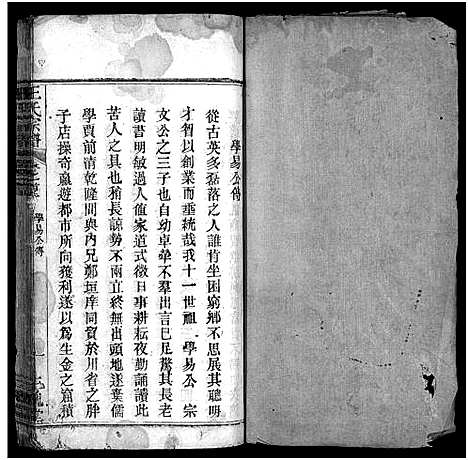 學易公傳
從古英多磊落之人誰肯坐困窮鄉不思展其聰明
才智以創業而垂統哉我十一世祖 學易公 宗
文公之三子也自幼卓犖不羣出言已足驚其長老
讀書明敏過人值家道式微日事耕耘夜勤誦讀此
苦人之具也稍長諒勢不兩立終無出頭地遂棄儒
學賈前清乾隆間與內兄鄭垣庠同貿於川省之胖
子店操奇贏遊都市所向獲利遂以為生金之窟積
王氏宗譜
學易公傳